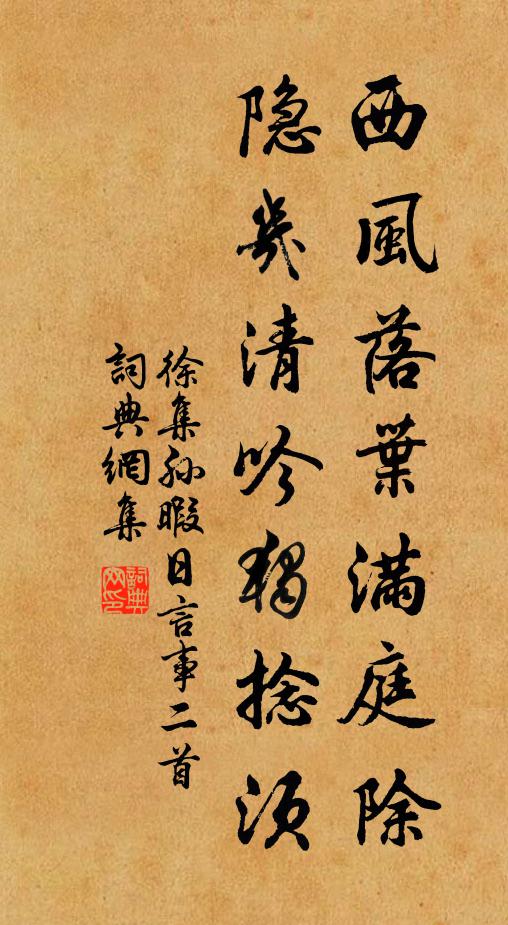 西風落葉滿庭除
隐幾清吟獨捻須
徐集孙暇日言事二首
詞典網集
詞典网印